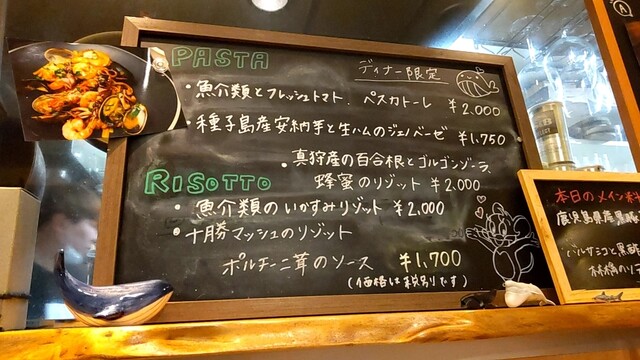 PASTA
ディナー限定
・魚介類とフレッシュトマト、ペスカトーレ ¥2,000
・種子島産安納芋と生ハムのジェノベーゼ ¥1,750
・真狩産の百合根とゴルゴンゾーラ、
蜂蜜のリゾット ¥2,000
RISOTTO
・魚介類のいかすみリゾット ¥2,000
・十勝マッシュのリゾット
ポルチーニ茸のソース ¥1,700
(価格は税別です)
本日のメイン料
鹿児島県産黒豚
バルサミコと黒酢